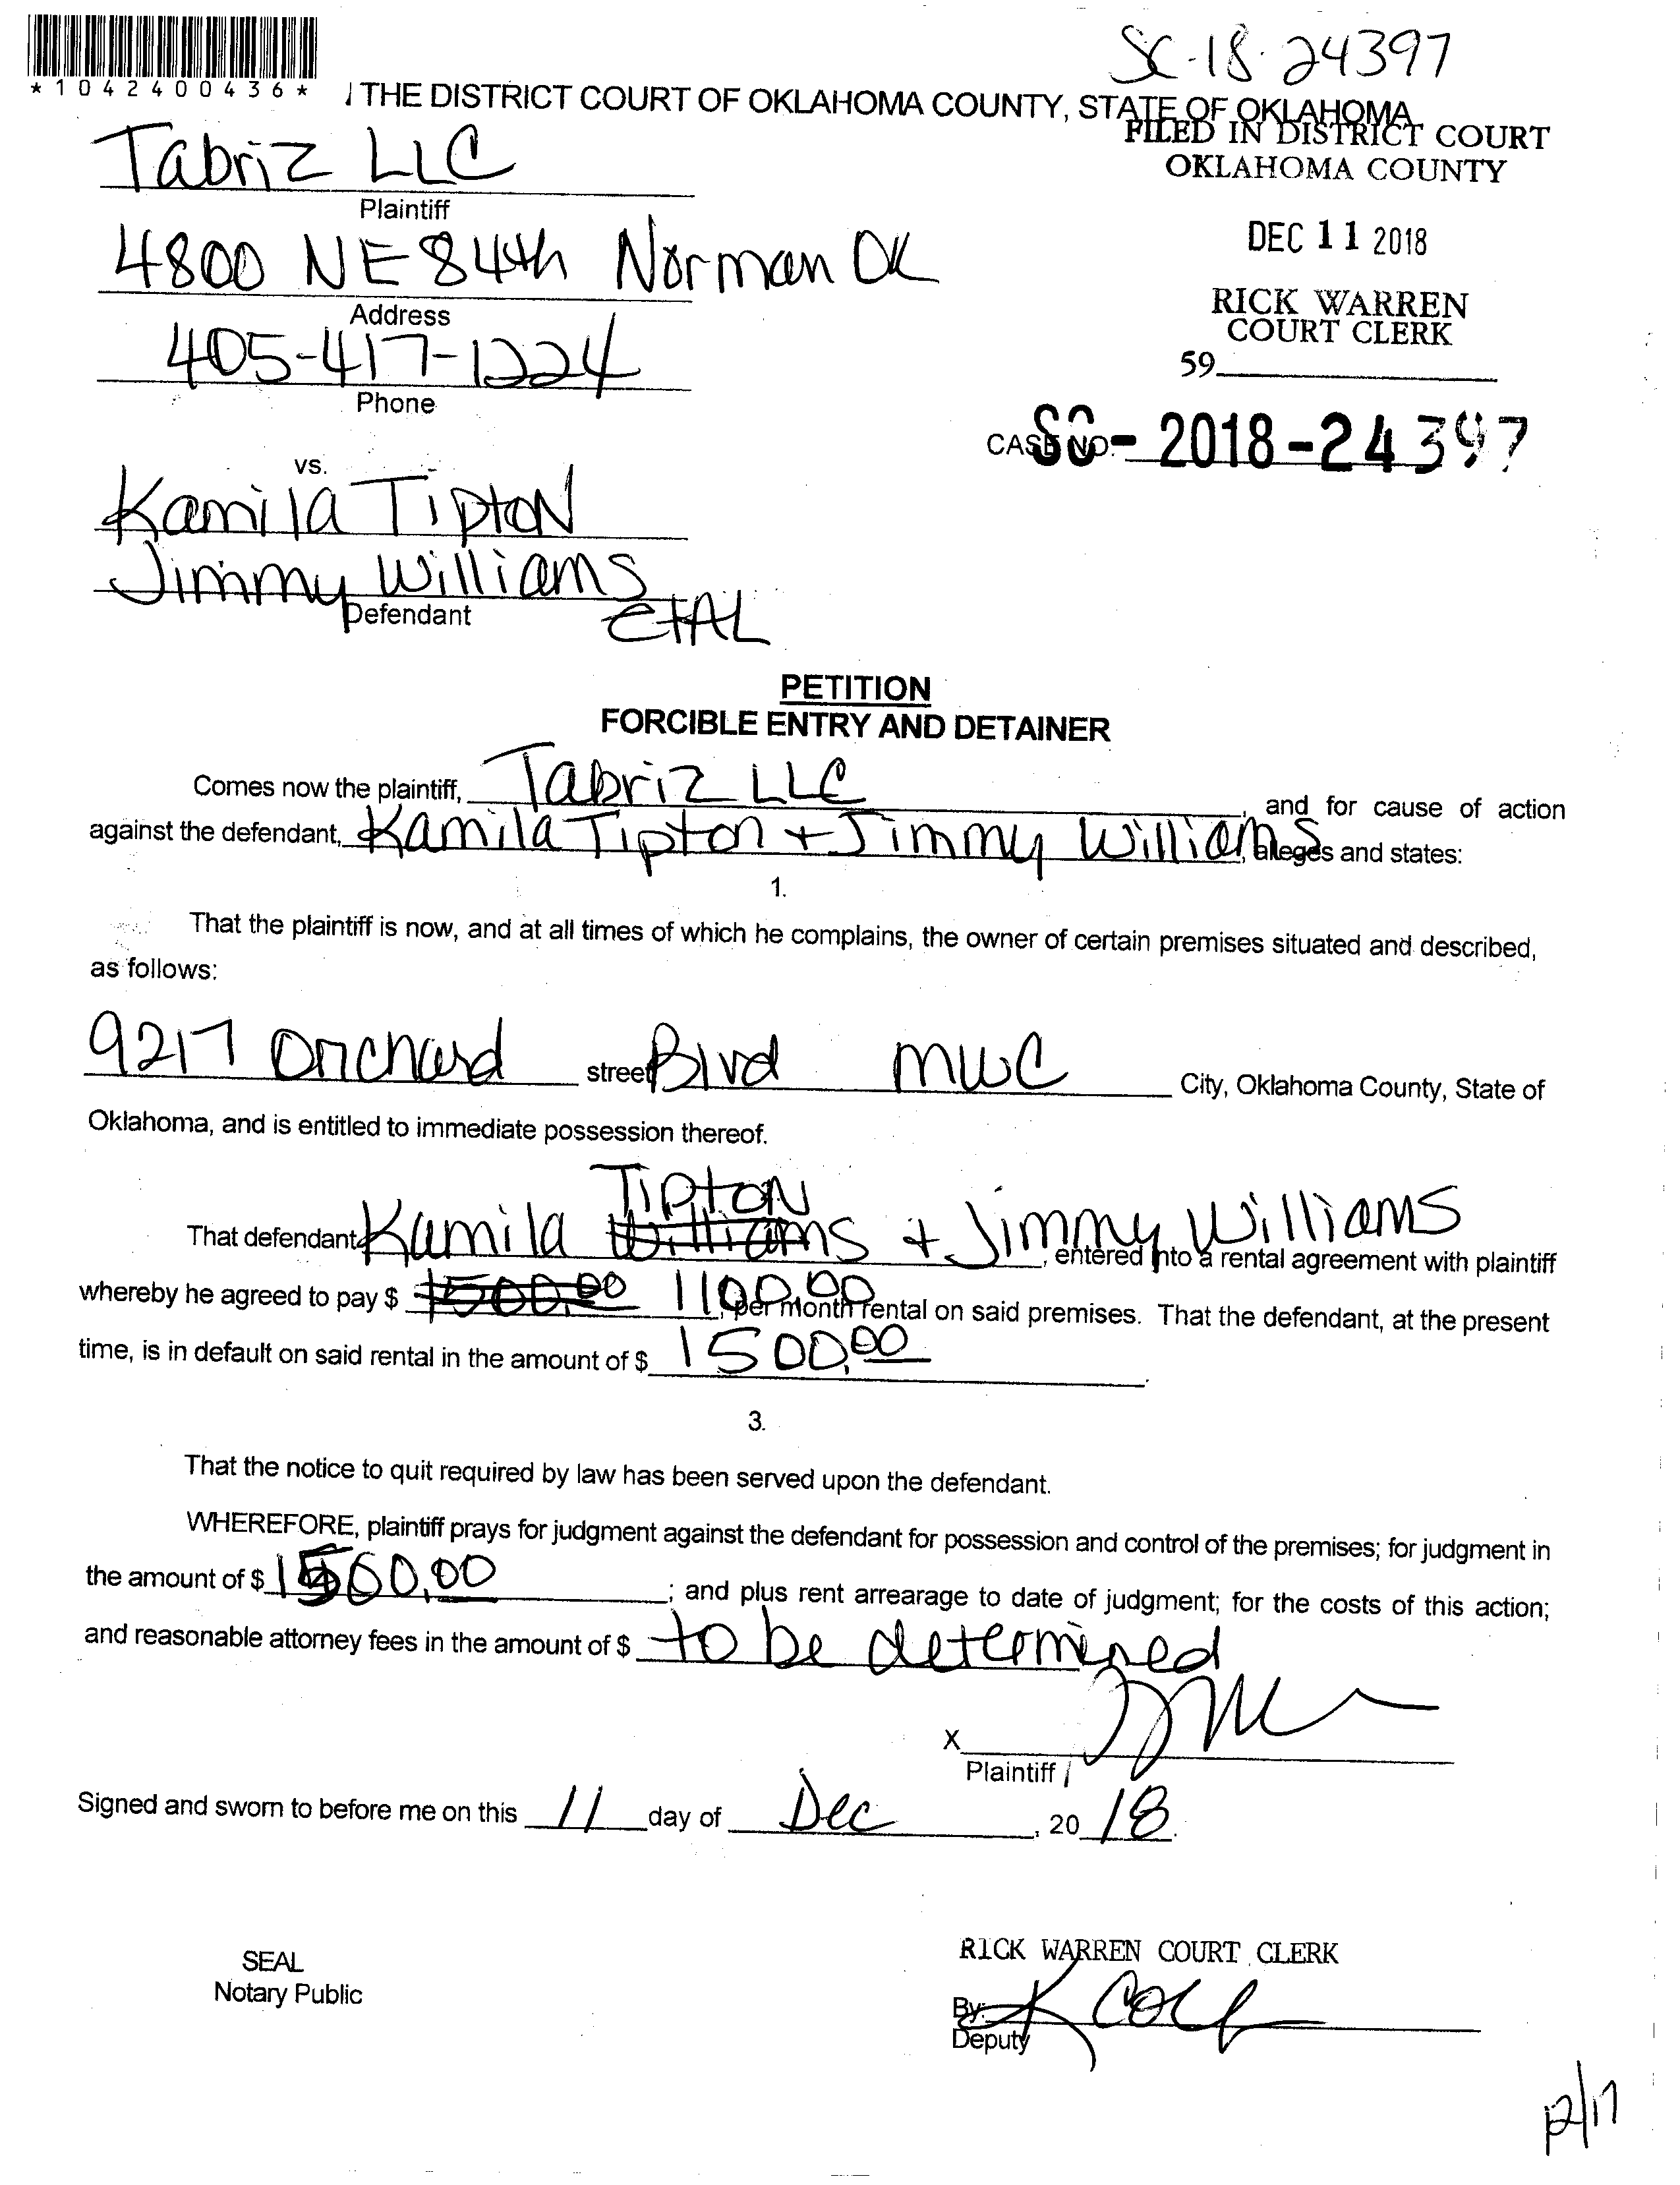 SC-18-24397
*1042400436*
THE DISTRICT COURT OF OKLAHOMA COUNTY, STATE OF OKLAHOMA
FILED IN DISTRICT COURT
OKLAHOMA COUNTY
Tabriz LLC
Plaintiff
4800 NE 84th Norman OK
Address
405-417-1224
Phone
DEC 11 2018
RICK WARREN
COURT CLERK
59
CASE NO. SC-2018-24397
vs.
Kamila Tipton
Jimmy Williams
Defendant
EtAL
PETITION
FORCIBLE ENTRY AND DETAINER
Comes now the plaintiff, Tabriz LLC, and for cause of action
against the defendant, Kamila Tipton + Jimmy Williams, alleges and states:
1.
That the plaintiff is now, and at all times of which he complains, the owner of certain premises situated and described,
as follows:
9217 Orchard street Blvd MWC City, Oklahoma County, State of
Oklahoma, and is entitled to immediate possession thereof.
Tipton
That defendant Kamila Williams + Jimmy Williams, entered into a rental agreement with plaintiff
whereby he agreed to pay $ 1500.00 1100.00, per month rental on said premises. That the defendant, at the present
time, is in default on said rental in the amount of $ 1500.00.
3.
That the notice to quit required by law has been served upon the defendant.
WHEREFORE, plaintiff prays for judgment against the defendant for possession and control of the premises; for judgment in
the amount of $ 1500.00; and plus rent arrearage to date of judgment; for the costs of this action;
and reasonable attorney fees in the amount of $ to be determined
X
Plaintiff
Signed and sworn to before me on this 11 day of Dec, 20 18.
SEAL
Notary Public
RICK WARREN COURT CLERK
By:
Deputy
12/17